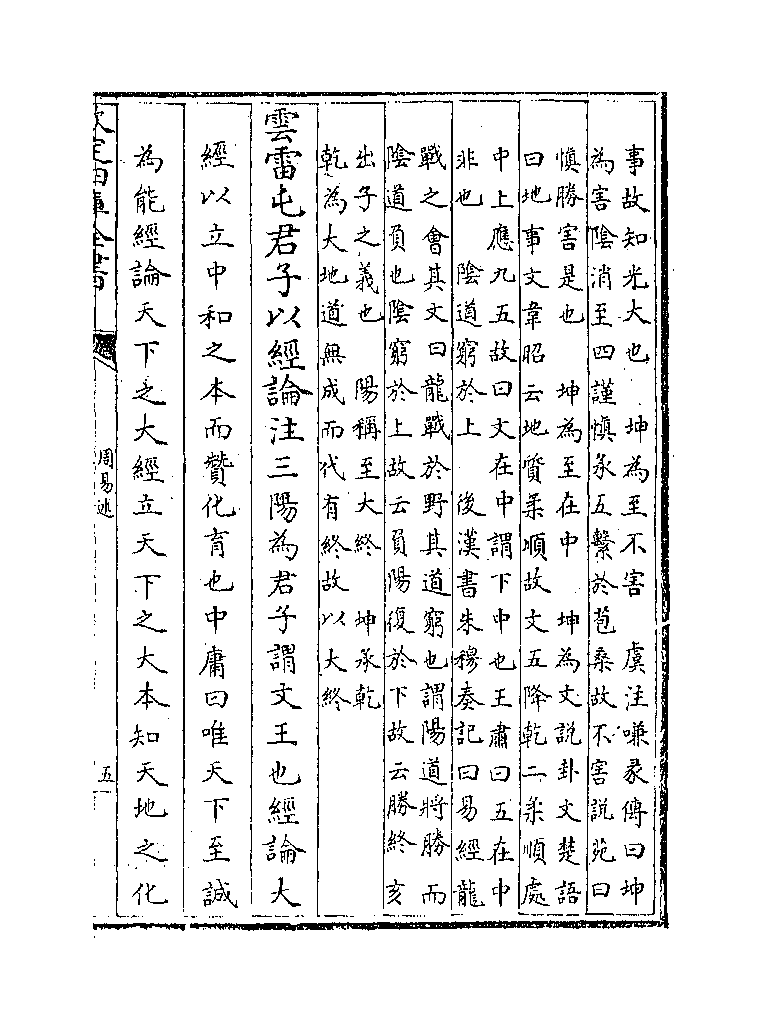 事故知光大也　坤為至不害　虞注嗛彖傳曰坤
為害陰消至四謹慎承五繫於苞桑故不害說苑曰
慎勝害是也　坤為至在中　坤為文說卦文楚語
曰地事文韋昭云地質柔順故文五降乾二柔順處
中上應九五故曰文在中謂下中也王肅曰五在中
非也　陰道窮於上　後漢書朱穆奏記曰易經龍
戰之會其文曰龍戰於野其道窮也謂陽道將勝而
陰道負也陰窮於上故云負陽復於下故云勝終亥
出子之義也　陽稱至大終　坤承乾
乾為大地道無成而代有終故以大終
雲雷屯君子以經論注三陽為君子謂文王也經論大
經以立中和之本而贊化育也中庸曰唯天下至誠
為能經論天下之大經立天下之大本知天地之化
欽定四庫全書
周易述
五